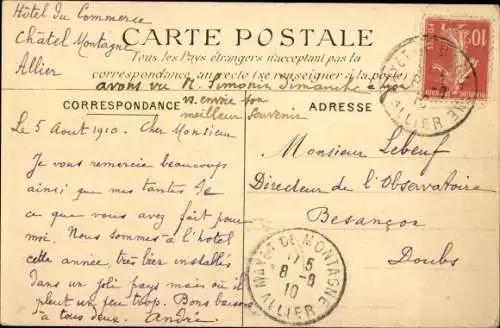 Hôtel du Commerce
Châtel Montagne
Allier
CARTE POSTALE
Tous les Pays étrangers n'acceptant pas la
correspondance au recto (se renseigner à la poste)
avons vu M. Simonin Dimanche à Lyon
vs envoie son
meilleur Souvenir
CORRESPONDANCE
ADRESSE
Le 5 Aout 1910. Cher Monsieur
Je vous remercie beaucoup
ainsi que mes tantes de
ce que vous avez fait pour
moi. Nous sommes à l'hotel
cette année, très bien installés
dans un joli pays mais où il
pleut un peu trop. Bons baisers
à tous deux. André.
Monsieur Lebeuf
Directeur de l'Observatoire
Besançon
Doubs
10
POSTES
MAYET DE MONTAGNE
8-8
10
ALLIER